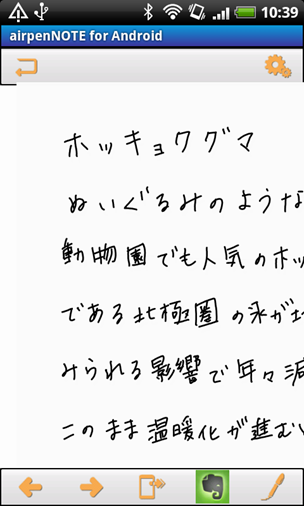 10:39
airpenNOTE for Android
ホッキョクグマ
ぬいぐるみのような
動物園でも人気のホッ
である北極圏の氷が
みられる影響で年々減
このまま温暖化が進む